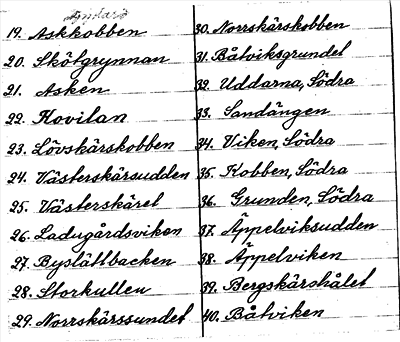 19. Askkobben
20. Skötgrynnan
21. Asken
22. Hovilan
23. Lövskärskobben
24. Västerskärsudden
25. Västerskäret
26. Ladugårdsviken
27. Byslättbacken
28. Storkullen
29. Norrskärssundet
30. Norrskärskobben
31. Båtviksgrundet
32. Uddarna, Södra
33. Sandängen
34. Viken, Södra
35. Kobben, Södra
36. Grunden, Södra
37. Äppelviksudden
38. Äppelviken
39. Bergskärshålet
40. Båtviken